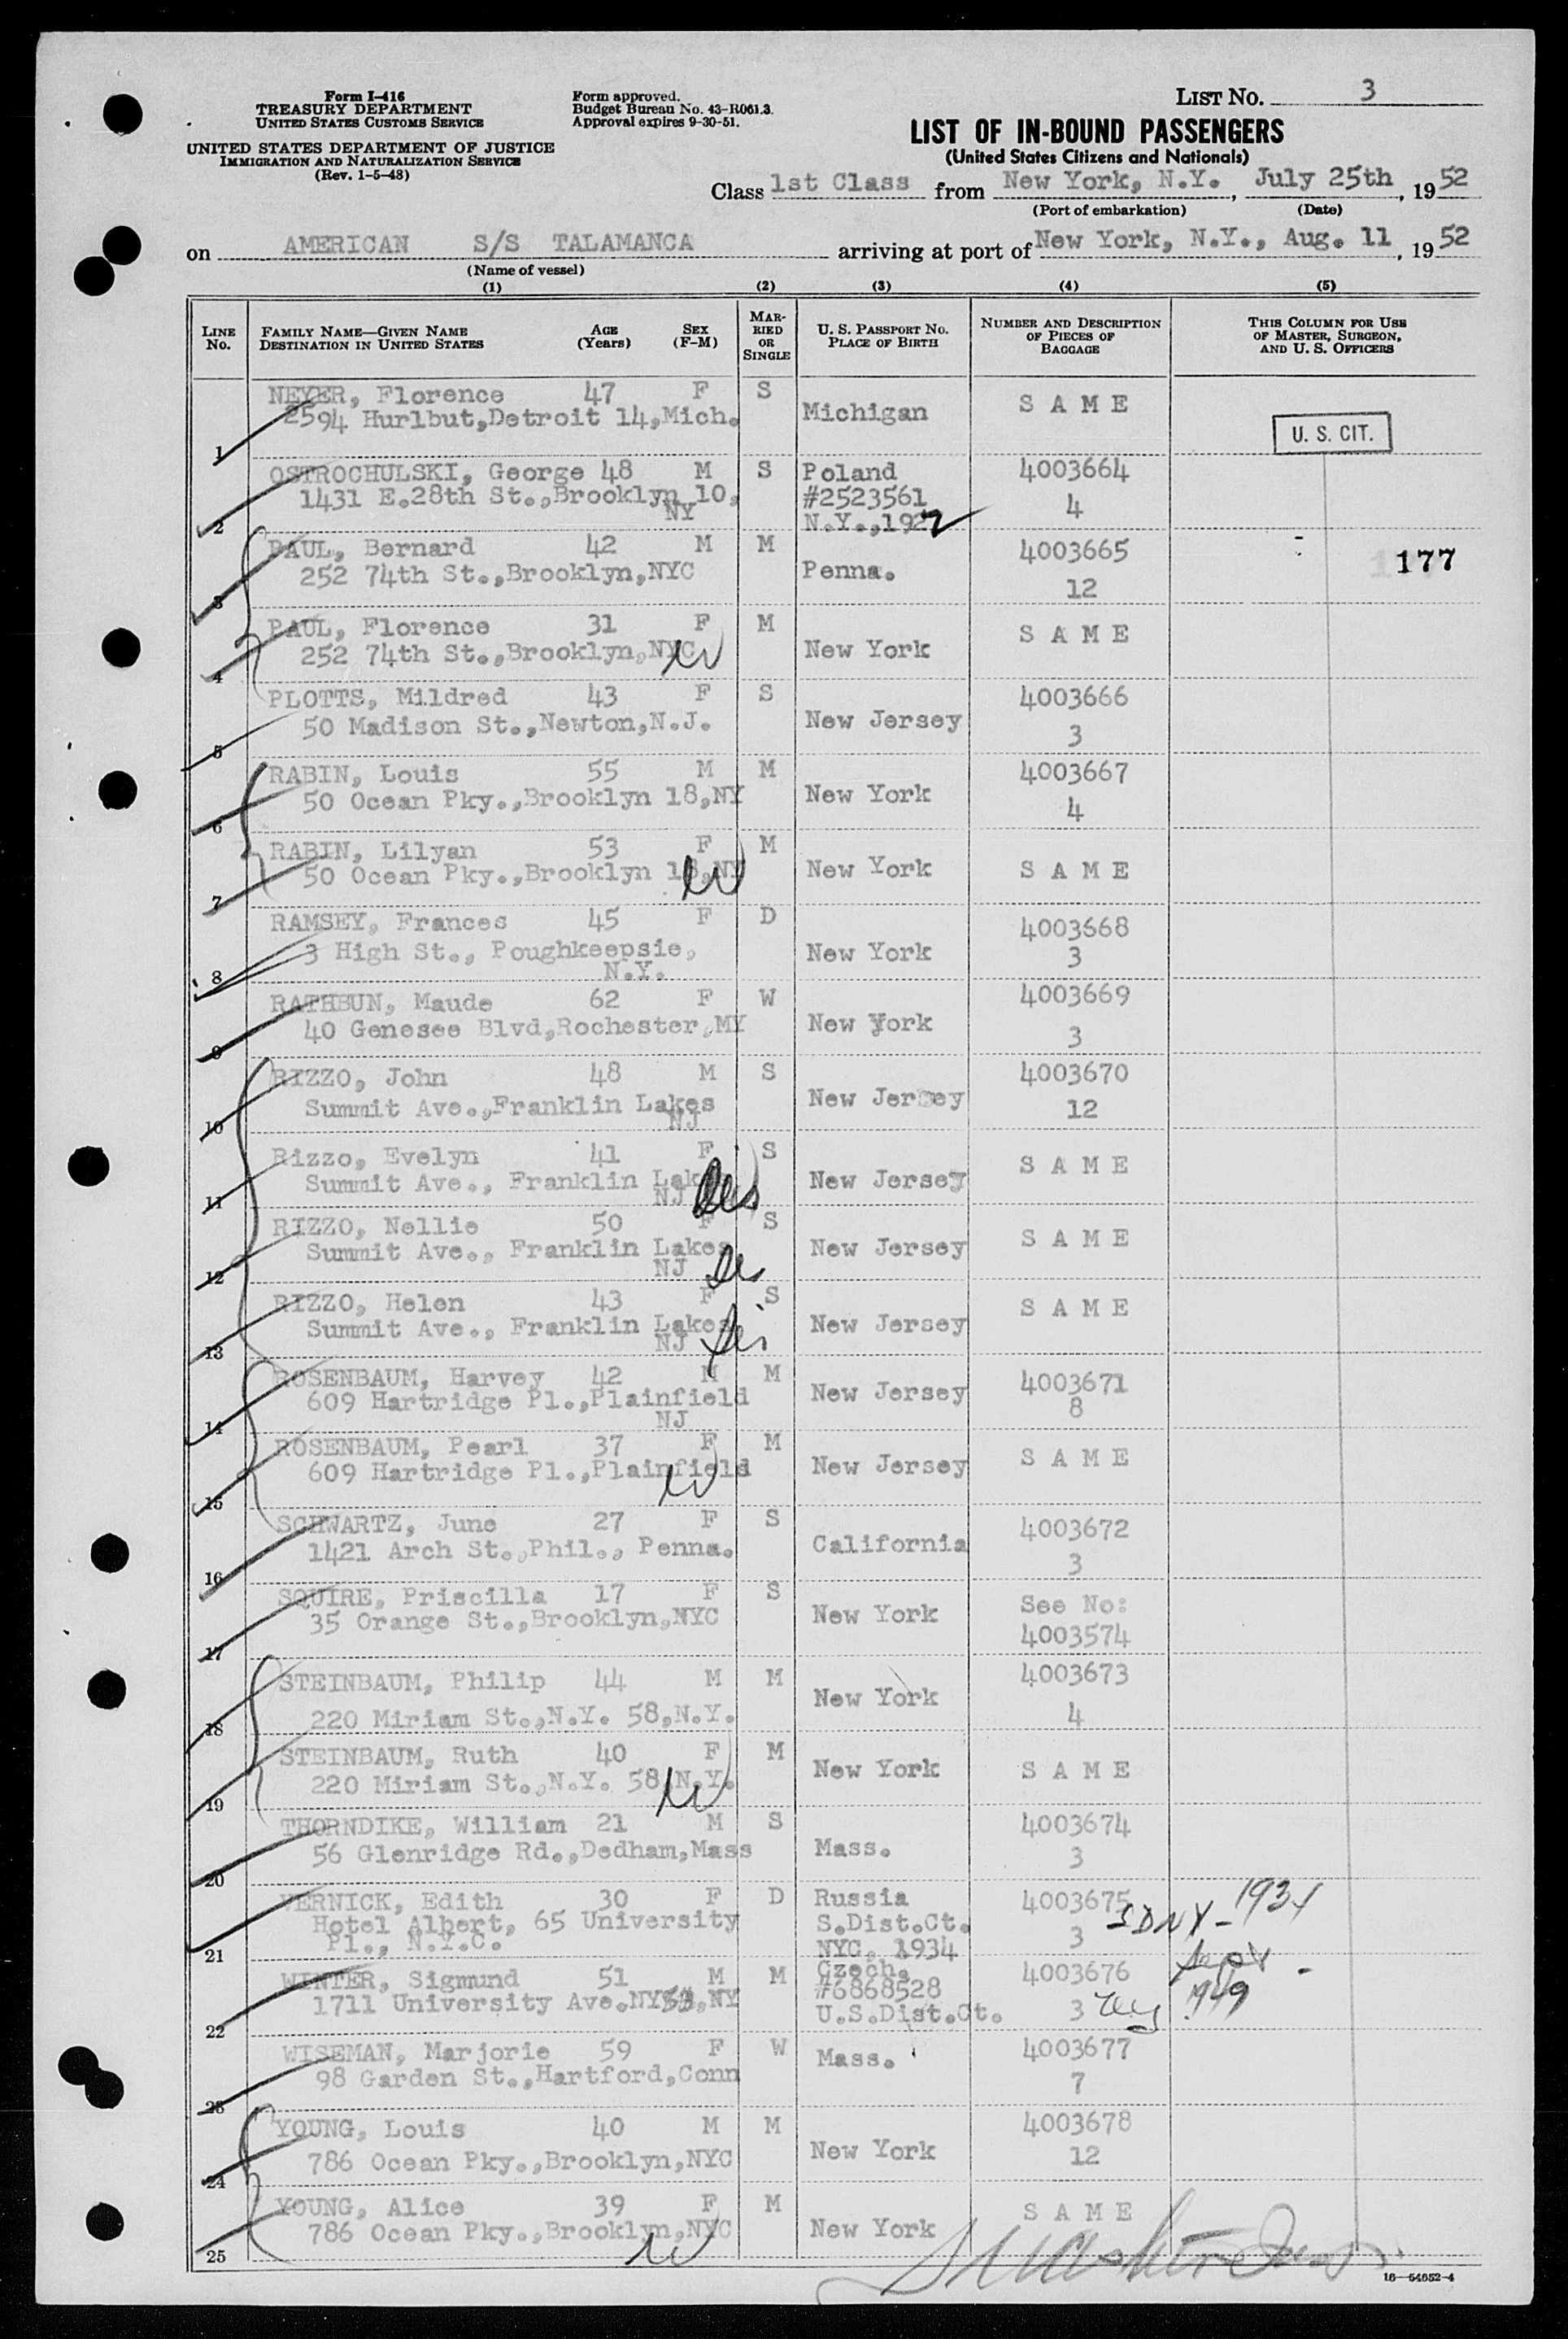 Form I-416
TREASURY DEPARTMENT
UNITED STATES CUSTOMS SERVICE
UNITED STATES DEPARTMENT OF JUSTICE
IMMIGRATION AND NATURALIZATION SERVICE
(Rev. 1-5-48)
Form approved.
Budget Bureau No. 43-R061.3.
Approval expires 9-30-51.
LIST NO. 3
LIST OF IN-BOUND PASSENGERS
(United States Citizens and Nationals)
Class 1st Class from New York, N.Y., July 25th, 1952
(Port of embarkation) (Date)
on AMERICAN S/S TALAMANCA arriving at port of New York, N.Y., Aug. 11, 1952
(Name of vessel)
(1) (2) (3) (4) (5)
LINE NO. FAMILY NAME—GIVEN NAME DESTINATION IN UNITED STATES AGE (Years) SEX (F-M) MARRIED OR SINGLE U. S. PASSPORT NO. PLACE OF BIRTH NUMBER AND DESCRIPTION OF PIECES OF BAGGAGE THIS COLUMN FOR USE OF MASTER, SURGEON, AND U. S. OFFICERS
NEYER, Florence 47 F S Michigan S A M E
2594 Hurlbut,Detroit 14,Mich.
1 U. S. CIT.
OSTROCHULSKI, George 48 M S Poland 4003664
1431 E.28th St.,Brooklyn 10, #2523561 4
2 NY N.Y.,1927
PAUL, Bernard 42 M M 4003665
252 74th St.,Brooklyn,NYC Penna. 177
3 12
PAUL, Florence 31 F M S A M E
252 74th St.,Brooklyn,NYC New York
4
PLOTTS, Mildred 43 F S 4003666
50 Madison St.,Newton,N.J. New Jersey
5 3
RABIN, Louis 55 M M 4003667
50 Ocean Pky.,Brooklyn 18,NY New York
6 4
RABIN, Lilyan 53 F M
50 Ocean Pky.,Brooklyn 18,NY New York S A M E
7
RAMSEY, Frances 45 F D 4003668
3 High St., Poughkeepsie, New York 3
8 N.Y.
RATHBUN, Maude 62 F W 4003669
40 Genesee Blvd,Rochester,MY New York
9 3
RIZZO, John 48 M S 4003670
Summit Ave.,Franklin Lakes New Jersey 12
10 NJ
Rizzo, Evelyn 41 F S S A M E
Summit Ave., Franklin Lakes New Jersey
11 NJ
RIZZO, Nellie 50 F S S A M E
Summit Ave., Franklin Lakes New Jersey
12 NJ
RIZZO, Helen 43 F S S A M E
Summit Ave., Franklin Lakes New Jersey
13 NJ
ROSENBAUM, Harvey 42 M M New Jersey 4003671
609 Hartridge Pl.,Plainfield 8
14 NJ
ROSENBAUM, Pearl 37 F M S A M E
609 Hartridge Pl.,Plainfield New Jersey
15
SCHWARTZ, June 27 F S 4003672
1421 Arch St.,Phil., Penna. California
16 3
SQUIRE, Priscilla 17 F S See No:
35 Orange St.,Brooklyn,NYC New York 4003574
17
STEINBAUM, Philip 44 M M 4003673
220 Miriam St.,N.Y. 58,N.Y. New York 4
18
STEINBAUM, Ruth 40 F M
220 Miriam St.,N.Y. 58,N.Y. New York S A M E
19
THORNDIKE, William 21 M S 4003674
56 Glenridge Rd.,Dedham,Mass Mass. 3
20
VERNICK, Edith 30 F D Russia 4003675
Hotel Albert, 65 University S.Dist.Ct. SDNY-1934
Pl., N.Y.C. NYC, 1934 3
21
WINTER, Sigmund 51 M M Czech. 4003676
1711 University Ave.NY53,NY #6868528 3 1949
22 U.S.Dist.Ct.
WISEMAN, Marjorie 59 F W Mass. 4003677
98 Garden St.,Hartford,Conn 7
23
YOUNG, Louis 40 M M 4003678
786 Ocean Pky.,Brooklyn,NYC New York 12
24
YOUNG, Alice 39 F M S A M E
786 Ocean Pky.,Brooklyn,NYC New York
25
16—54652-4